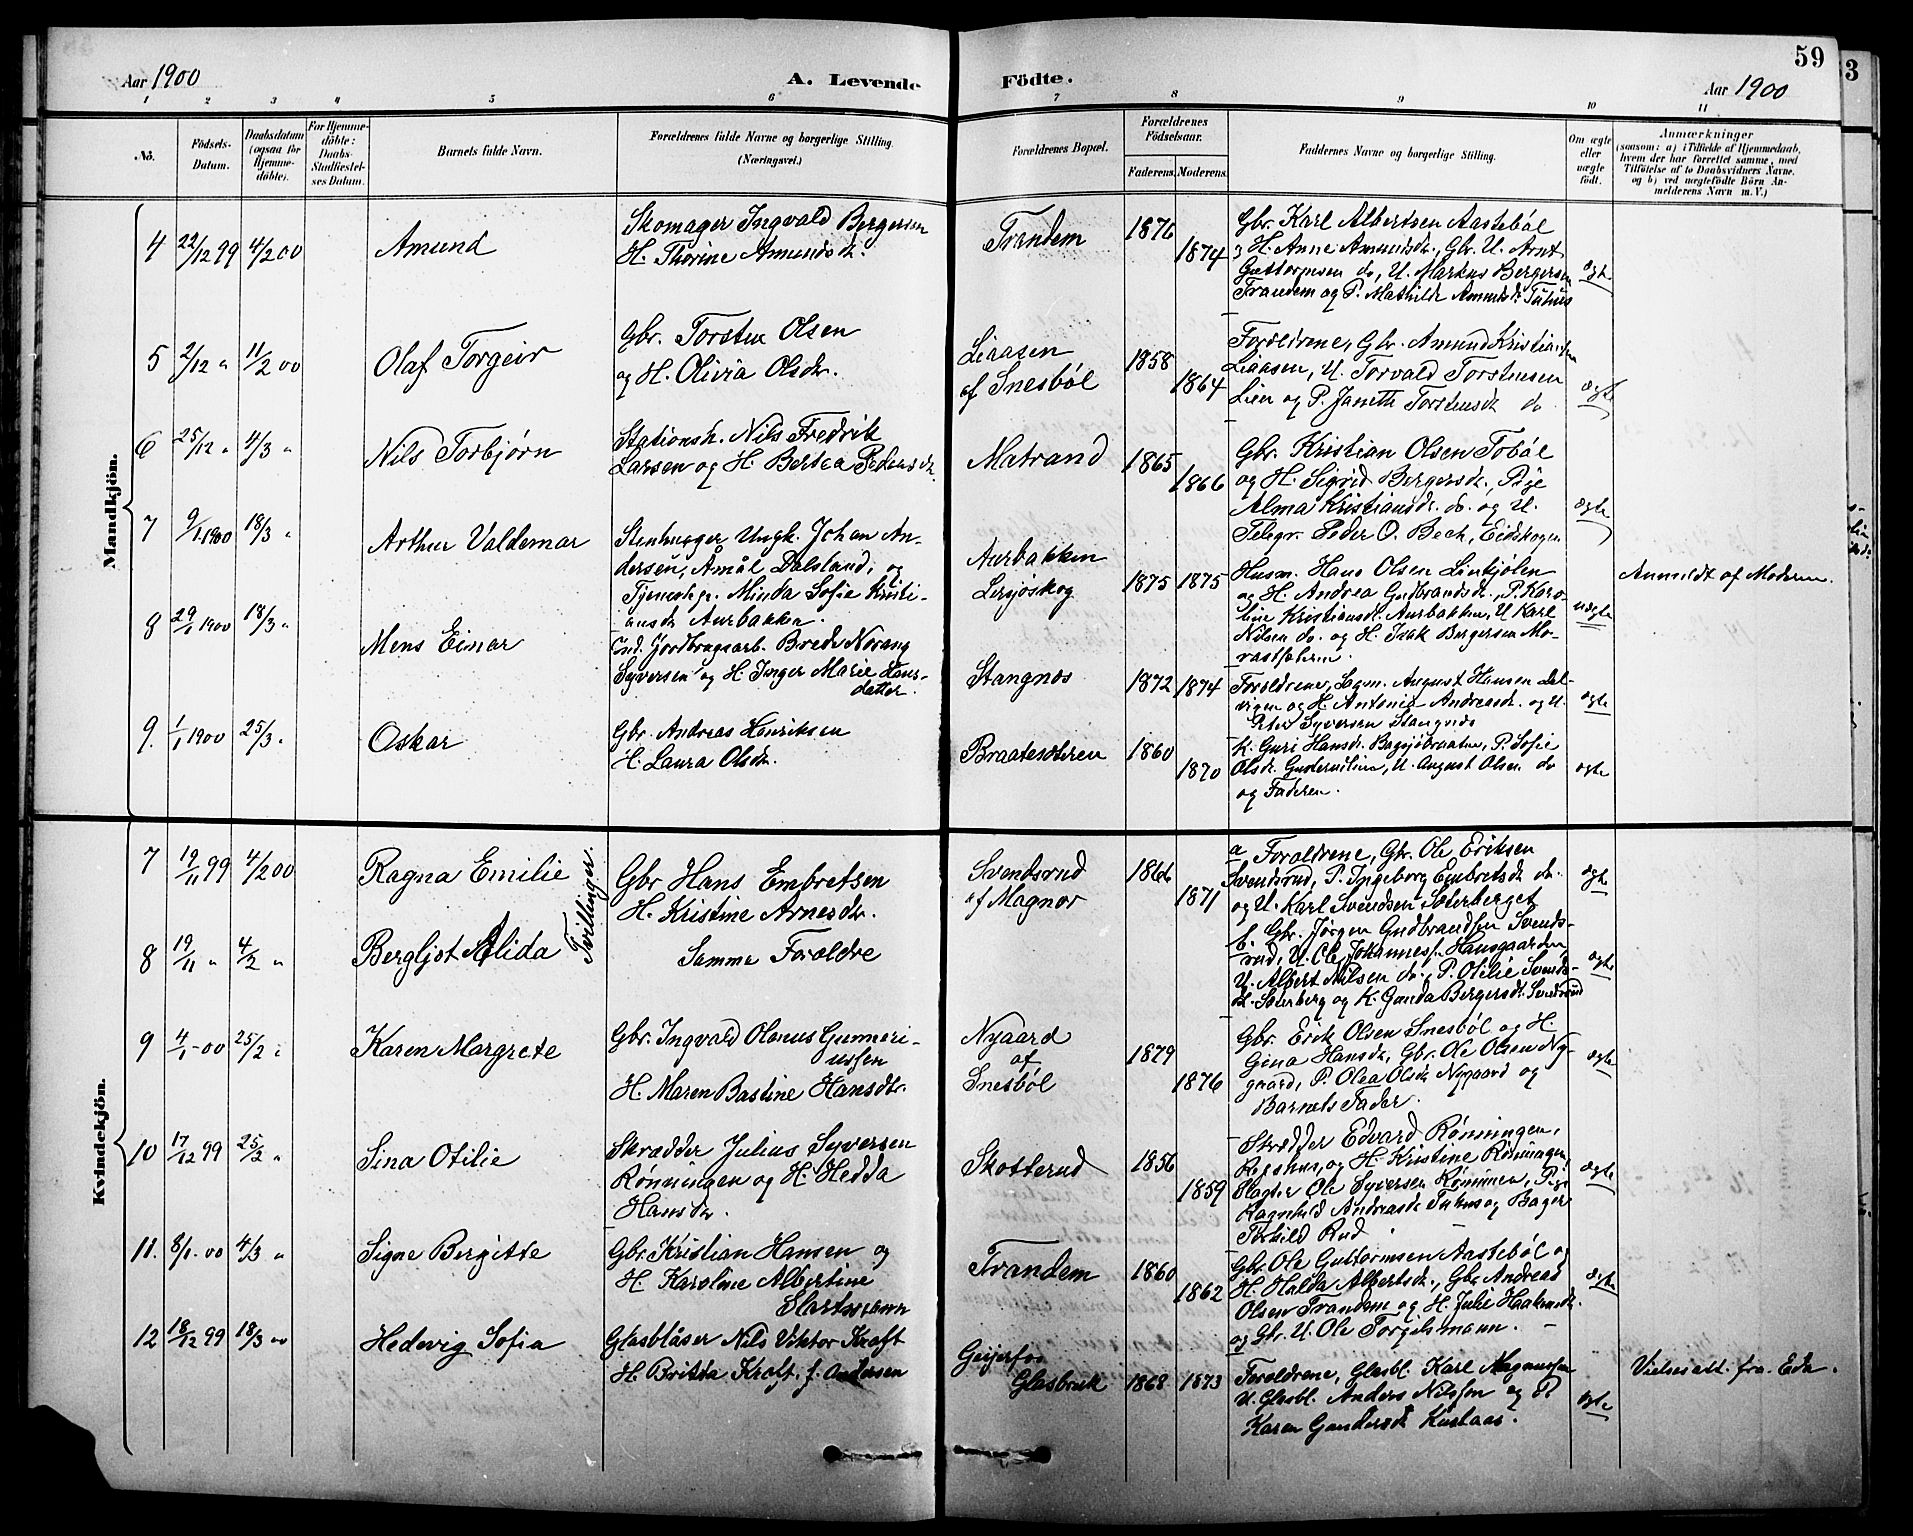 59
Aar 1900
A. Levende Födte.
Aar 1900
1 2 3 4 5 6 7 8 9 10 11
No.
Födsels-
Datum.
Daabsdatum
(ogsaa for
Hjemme-
döbte).
For Hjemme-
döbte:
Daabs-
Stadfæstel-
ses Datum.
Barnets fulde Navn.
Forældrenes fulde Navne og borgerlige Stilling.
(Næringsvei.)
Forældrenes Bopæl.
Forældrenes
Födselsaar.
Faderens. Moderens.
Faddernes Navne og borgerlige Stilling.
Om ægte
eller
uægte
födt.
Anmærkninger
(saasom: a) i Tilfælde af Hjemmedaab,
hvem der har forrettet samme, med
Tilföielse af to Daabsvidners Navne.
og b) ved uægtefödte Börn An-
melderens Navn m. V.)
Mandkjön.
4 22/12 99 4/2 00 Amund
Skomager Ingvald Bergersen
H. Thorine Amundsdr.
Trandem 1876 1874
Gbr. Karl Albertsen Aastebøl
H. Anne Amundsdr., Gbr. U. Arnt
Guttormsen do, U. Markus Bergersen
Trandem og P. Mathilde Amundsdr Tuhus
ægte
5 2/12 " 11/2 00 Olaf Torgeir
Gbr. Torsten Olsen
og H. Olivia Olsdr.
Liaasen
af Snesbøl
1858 1864
Forældrene, Gbr. Amund Kristiansen
Liaasen, U. Torvald Torstensen
Lien og P. Janette Torstensdr do
ægte
6 25/12 " 4/3 " Nils Torbjørn
Stationsk. Nils Fredrik
Larsen og H. Bertea Pedersdr.
Matrand 1865 1866
Gbr. Kristian Olsen Tobøl
og H. Sigrid Bergersdr., Pige
Alma Kristiansdr. do. og U.
Telegr. Peder O. Bech, Eidskogen
ægte
7 9/1 1900 18/3 " Arthur Valdemar
Stenhugger Ungk. Johan An-
dersen, Åmål Dalsland, og
Tjenestep. Minda Sofie Kristi-
ansdr Aurbakken.
Aurbakken
Lersjøskog
1875 1875
Husm. Hans Olsen Linkjølen
og H. Andrea Gudbrandsdr., P. Karo-
line Kristiansdr. Aurbakken, U. Karl
Nilsen do. og H. Isak Bergersen Mo-
rastsæteren.
uægte
Anmeldt af Moderen.
8 29/1 1900 18/3 " Mens Eimar
Ind. Jordbrugsarb. Brede Norang
Syversen og H. Inger Marie Hans-
datter.
Stangnes 1872 1874
Forældrene, Sagm. August Hansen
og H. Antonie Andreasdr. og U.
Peter Syversen Stangnes
ægte
9. 1/1 1900 25/3 " Oskar
Gbr. Andreas Henriksen
H. Laura Olsdr.
Braatesæteren 1860 1870
K. Guri Hansdr. Bagsjøbraaten, P. Sofie
Olsdr. U. August Olsen do
og Faderen.
ægte
Kvindekjön.
7 19/11 99 4/2 00 Ragna Emilie
Tvillinger.
Gbr Hans Embretsen
H. Kristine Arnesdr.
Svendsrud
af Magnor
1866 1871
a Forældrene, Gbr. Ole Eriksen
Svendsrud, P. Ingeborg Embretsdr do.
og U. Karl Svendsen Sæterberget
ægte
8 19/11 " 4/2 " Bergljot Alida
Samme Forældre
b. Gbr. Jørgen Gudbrandsen Svends-
rud, U. Ole Johannesf. Hansgaarden
U. Albert Nilsen do., P. Otilie Svends-
dr. Sæterberg og K. Gunda Bergersdr. Svendsrud
ægte
9 4/1 - 00 25/2 " Karen Margrete
Gbr. Ingvald Olanus Gunneri-
ussen
H. Maren Bastine Hansdtr.
Nygaard
af
Snesbøl
1879 1876
Gbr. Erik Olsen Snesbøl og H.
Gina Hansdr, Gbr. Ole Olsen Ny-
gaard, P. Olea Olsdr Nygaard og
Barnets Fader.
ægte
10 17/12 99 25/2 " Sina Otilie
Skrædder Julius Syversen
Rønningen og H. Hedda
Hansdr.
Skotterud 1856 1859
Skrædder Edvard Rønningen,
og H. Kristine Rønningen,
Slagter Ole Syversen Rønningen, Pige
Ragnhild Andreasdr Tuhus og Bager
Torhild Rud
ægte
11. 8/1. 00 4/3 " Signe Bergitte
Gbr. Kristian Hansen og
H. Karoline Albertine
Slartmann
Trandem 1860 1862
Gbr. Ole Guttormsen Aastebøl og
H. Halda Albertsdr., Gbr. Andreas
Olsen Trandem og H. Julie Haakensdr.
og Gbr. U. Ole Torgilsmann.
ægte
12 18/12 99 18/3 00 Hedevig Sofia
Glasblåser Nils Viktor Kraft
H. Britta Kraft, f. Andersen
Geijerfos
Glasbruk
1868 1873
Forældrene, Glasbl. Karl Magnussen
U. Glasbl. Anders Nilssen og P.
Karen Gundersdr
ægte
Vielsesatt. fra Eda.